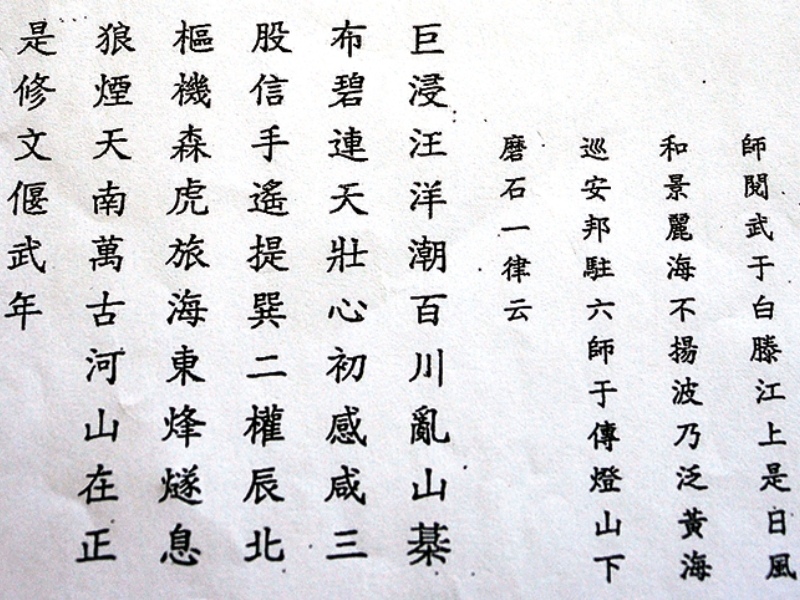 師閱武于白滕江上是日風
和景麗海不揚波乃泛黃海
巡安邦駐六師于傳燈山下
磨石一律云
巨浸汪洋潮百川亂山棊
布碧連天壯心初感咸三
股信手遙提巽二權辰北
樞機森虎旅海東烽燧息
狼煙天南萬古河山在正
是修文偃武年